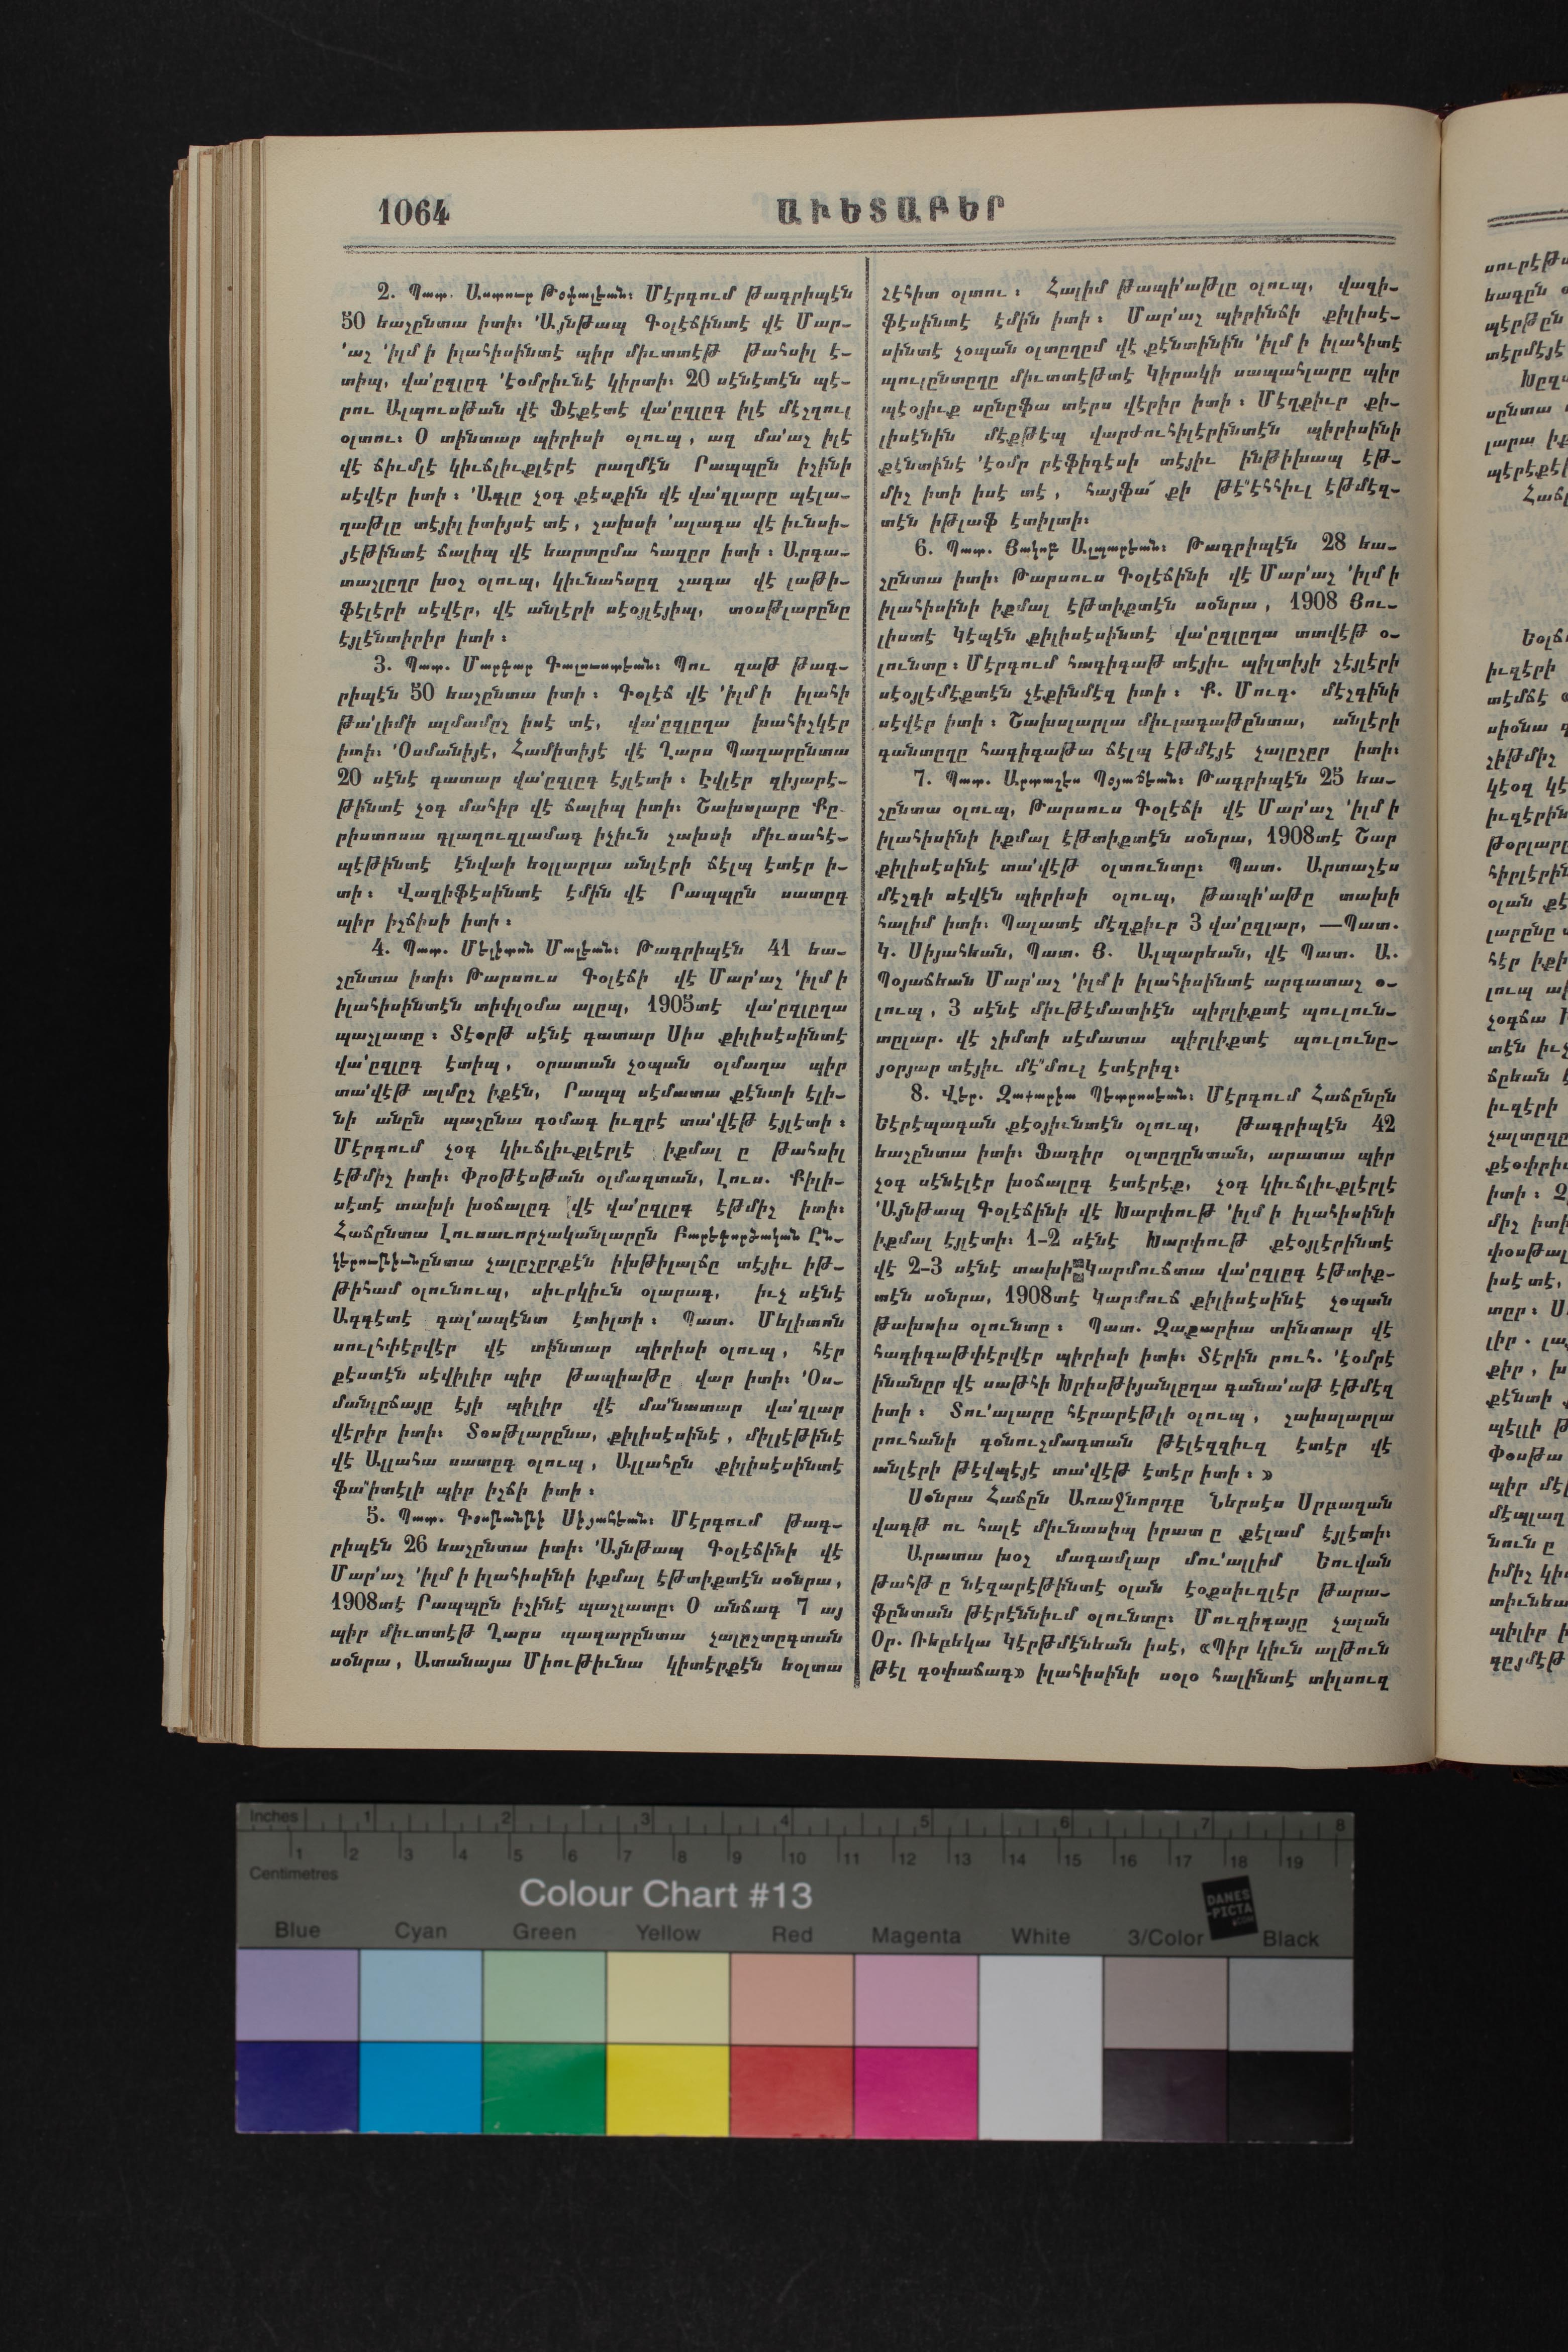 1064
ԱՒԵՏԱԲԵՐ
2. Պատ. Աստուր Թօփալեան։ Մէրգում թագրիպէն
50 եաշընտա իտի։ ՚Այնթապ Գօլէճինտէ վէ Մար-
՚աշ ՚իլմ ի իլահիսինտէ պիր միւտտէթ թահսիլ է-
տիպ, վա՚ըզլըգ ՚էօմրիւնէ կիրտի։ 20 սէնէտէն պէ-
րու Ալպուսթան վէ Ֆէքէտէ վա՚ըզլըգ իլէ մէշղուլ
օլտու։ Օ տինտար պիրիսի օլուպ, ազ մա՚աշ իլէ
վէ ճիւմլէ կիւճլիւքլէրէ րաղմէն Րապպըն իշինի
սէվէր իտի։ ՚Ագլը չօգ քէսքին վէ վա՚զլարը պէլա-
ղաթլը տէյիլ իտիյսէ տէ, շախսի ՚ալագա վէ իւնսի-
յէթինտէ ճալիպ վէ եարտըմա հազըր իտի։ Արգա-
տաշլըղր խօշ օլուպ, կիւնահսըզ շագա վէ լաթի-
ֆէլէրի սէվէր, վէ անլէրի սէօյլէյիպ, տօսթլարընը
էյլէնտիրիր իտի։
3. Պատ. Մարգար Գալուստեան։ Պու զաթ թագ-
րիպէն 50 եաշընտա իտի։ Գօլէճ վէ ՚իլմ ի իլահի
թա՚լիմի ալմամըշ իսէ տէ, վա՚ըզլըղա խահիշկէր
իտի։ ՚Օսմանիյէ, Համիտիյէ վէ Ղարս Պազարընտա
20 սէնէ գատար վա՚ըզլըգ էյլէտի։ Էվլէր զիյարէ-
թինտէ չօգ մահիր վէ ճալիպ իտի։ Շախսլարը Քը-
րիստոսա գլաղուզլամագ իչիւն շախսի միւսահէ-
պէթինտէ էնվաի եօլլարլա անլէրի ճէլպ էտէր ի-
տի։ Վազիֆէսինտէ էմին վէ Րապպըն սատըգ
պիր իշճիսի իտի։
4. Պատ. Մելիտոն Մալեան։ Թագրիպէն 41 եա-
շընտա իտի։ Թարսուս Գօլէճի վէ Մար՚աշ ՚իլմ ի
իլահիսինտէն տիփլօմա ալըպ, 1905տէ վա՚ըզլըղա
պաշլատը։ Տէօրթ սէնէ գատար Սիս քիլիսէսինտէ
վա՚ըզլըգ էտիպ, օրատան չօպան օլմաղա պիր
տա՚վէթ ալմըշ իքէն, Րապպ սէմատա քէնտի էլի-
նի անըն պաշընա գօմագ իւզրէ տա՚վէթ էյլէտի։
Մէրգում չօգ կիւճլիւքլէրլէ իքմալ ը թահսիլ
էթմիշ իտի։ Փրօթէսթան օլմազտան, Լուս. Քիլի-
սէտէ տախի խօճալըգ վէ վա՚ըզլըգ էթմիշ իտի։
Հաճընտա Լուսաւորչականլարըն Բարեգործական Ըն-
կերութիւնընտա չալըշըրքէն իխթիլալճը տէյիւ իթ-
թիհամ օլունուպ, սիւրկիւն օլարագ, իւչ սէնէ
Ագգէտէ գալ՚ապէնտ էտիլտի։ Պատ. Մելիտոն
սուլհփէրվէր վէ տինտար պիրիսի օլուպ, հէր
քէստէն սէվիլիր պիր թապիաթը վար իտի։ ՚Օս-
մանլըճայը էյի պիլիր վէ մա՚նատար վա՚զլար
վէրիր իտի։ Տօսթլարընա, քիլիսէսինէ, միլլէթինէ
վէ Ալլահա սատըգ օլուպ, Ալլահըն քիլիսէսինտէ
ֆա՚իտէլի պիր իշճի իտի։
5. Պատ. Գօսթանթի Սիյահեան։ Մէրգում թագ-
րիպէն 26 եաշընտա իտի։ ՚Այնթապ Գօլէճինի վէ
Մար՚աշ ՚իլմ ի իլահիսինի իքմալ էթտիքտէն սօնրա,
1908տէ Րապպըն իշինէ պաշլատը։ Օ անճագ 7 այ
պիր միւտտէթ Ղարս պազարընտա չալըշտըգտան
սօնրա, Ատանայա Միութիւնա կիտէրքէն եօլտա
շէհիտ օլտու։ Հալիմ թապի՚աթլը օլուպ, վազի-
ֆէսինտէ էմին իտի։ Մար՚աշ պիրինճի քիլիսէ-
սինտէ չօպան օլտըղըմ վէ քէնտինին ՚իլմ ի իլահիտէ
պուլընտըղը միւտտէթտէ Կիրակի սապահլարը պիր
պէօյիւք սընըֆա տէրս վէրիր իտի։ Մէզքիւր քի-
լիսէնին մէքթէպ վարժուհիլէրինտէն պիրիսինի
քէնտինէ ՚էօմր րէֆիգէսի տէյիւ ինթիխապ էթ-
միշ իտի իսէ տէ, հայֆա՜ քի թէ՚էհհիւլ էթմէզ-
տէն իթլաֆ էտիլտի։
6. Պատ. Յակոբ Ալպարեան։ Թագրիպէն 28 եա-
շընտա իտի։ Թարսուս Գօլէճինի վէ Մար՚աշ ՚իլմ ի
իլահիսինի իքմալ էթտիքտէն սօնրա, 1908 Յու-
լիստէ Կէպէն քիլիսէսինտէ վա՚ըզլըղա տավէթ օ-
լունտը։ Մէրգում հագիգաթ տէյիւ պիլտիյի շէյլէրի
սէօյլէմէքտէն չէքինմէզ իտի։ Ք. Մուգ. մէշգինի
սէվէր իտի։ Շախսլարլա միւլագաթընտա, անլէրի
գանտըղը հագիգաթա ճէլպ էթմէյէ չալըշըր իտի։
7. Պատ. Արտաշէս Պօյաճեան։ Թագրիպէն 25 եա-
շընտա օլուպ, Թարսուս Գօլէճի վէ Մար՚աշ ՚իլմ ի
իլահիսինի իքմալ էթտիքտէն սօնրա, 1908տէ Շար
քիլիսէսինէ տա՚վէթ օլտունտը։ Պատ. Արտաշէս
մէշգի սէվէն պիրիսի օլուպ, թապի՚աթը տախի
հալիմ իտի։ Պալատէ մէզքիւր 3 վա՚ըզլար, —Պատ.
Կ. Սիյահեան, Պատ. Յ. Ալպարեան, վէ Պատ. Ա.
Պօյաճեան Մար՚աշ ՚իլմ ի իլահիսինտէ արգատաշ օ-
լուպ, 3 սէնէ միւթէմատիէն պիրլիքտէ պուլուն-
տըլար. վէ շիմտի սէմատա պիրլիքտէ պուլունը-
յօրլար տէյիւ մէ՚մուլ էտէրիզ։
8. Վեր. Զաքարիա Պետրոսեան։ Մէրգում Հաճընըն
Եէրէպագան քէօյիւնտէն օլուպ, թագրիպէն 42
եաշընտա իտի։ Ֆագիր օլտըղընտան, արատա պիր
չօգ սէնէլէր խօճալըգ էտէրէք, չօգ կիւճլիւքլէրլէ
՚Այնթապ Գօլէճինի վէ Խարփութ ՚իլմ ի իլահիսինի
իքմալ էյլէտի։ 1-2 սէնէ Խարփութ քէօյլէրինտէ
վէ 2-3 սէնէ տախի Կարմուճտա վա՚ըզլըգ էթտիք-
տէն սօնրա, 1908տէ Կարմուճ քիլիսէսինէ չօպան
թախսիս օլունտը։ Պատ. Զաքարիա տինտար վէ
հագիգաթփէրվէր պիրիսի իտի։ Տէրին րուհ. ՚էօմրէ
ինանըր վէ սաթհի Խրիսթիյանլըղա գանա՚աթ էթմէզ
իտի։ Տու՚ալարը հէրարէթլի օլուպ, շախսլարլա
րուհանի գօնուշմագտան թէլէզզիւզ էտէր վէ
անլէրի թէվպէյէ տա՚վէթ էտէր իտի։»
Սօնրա Հաճըն Առաջնորդը Ներսէս Սրբազան
վագթ ու հալէ միւնասիպ իրատ ը քէլամ էյլէտի։
Արատա խօշ մագամլար մու՚ալլիմ Եուվան
թահթ ը նէզարէթինտէ օլան էօքսիւզլէր թարա-
ֆընտան թէրէննիւմ օլունտը։ Մուզիգայը չալան
Օր. Ռեբեկա Կէրթմէնեան իսէ, «Պիր կիւն ալթուն
թէլ գօփաճագ» իլահիսինի սօլօ հալինտէ տիլսուզ
Inches 1 2 3 4 5 6 7 8
1 2 3 4 5 6 7 8 9 10 11 12 13 14 15 16 17 18 19
Centimetres
Colour Chart #13
DANES
-PICTA
.COM
Blue Cyan Green Yellow Red Magenta White 3/Color Black